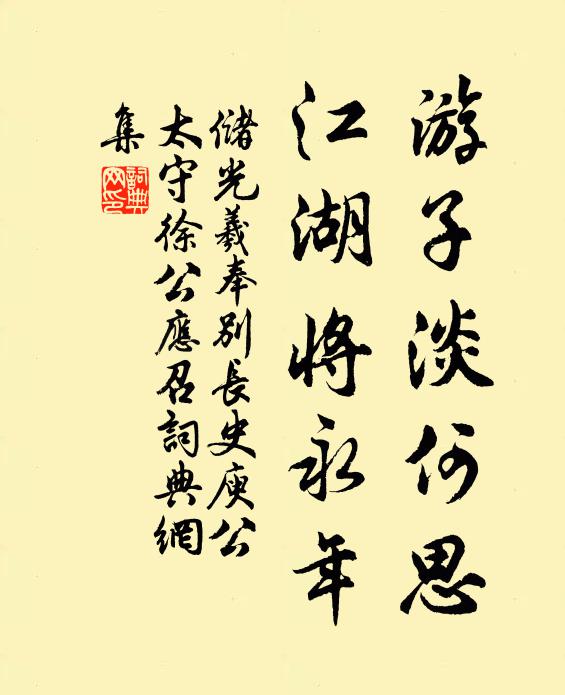 游子淡何思
江湖将永年
儲光羲奉別長史庾公
太守徐公應召詞典網
集
詞典
網印